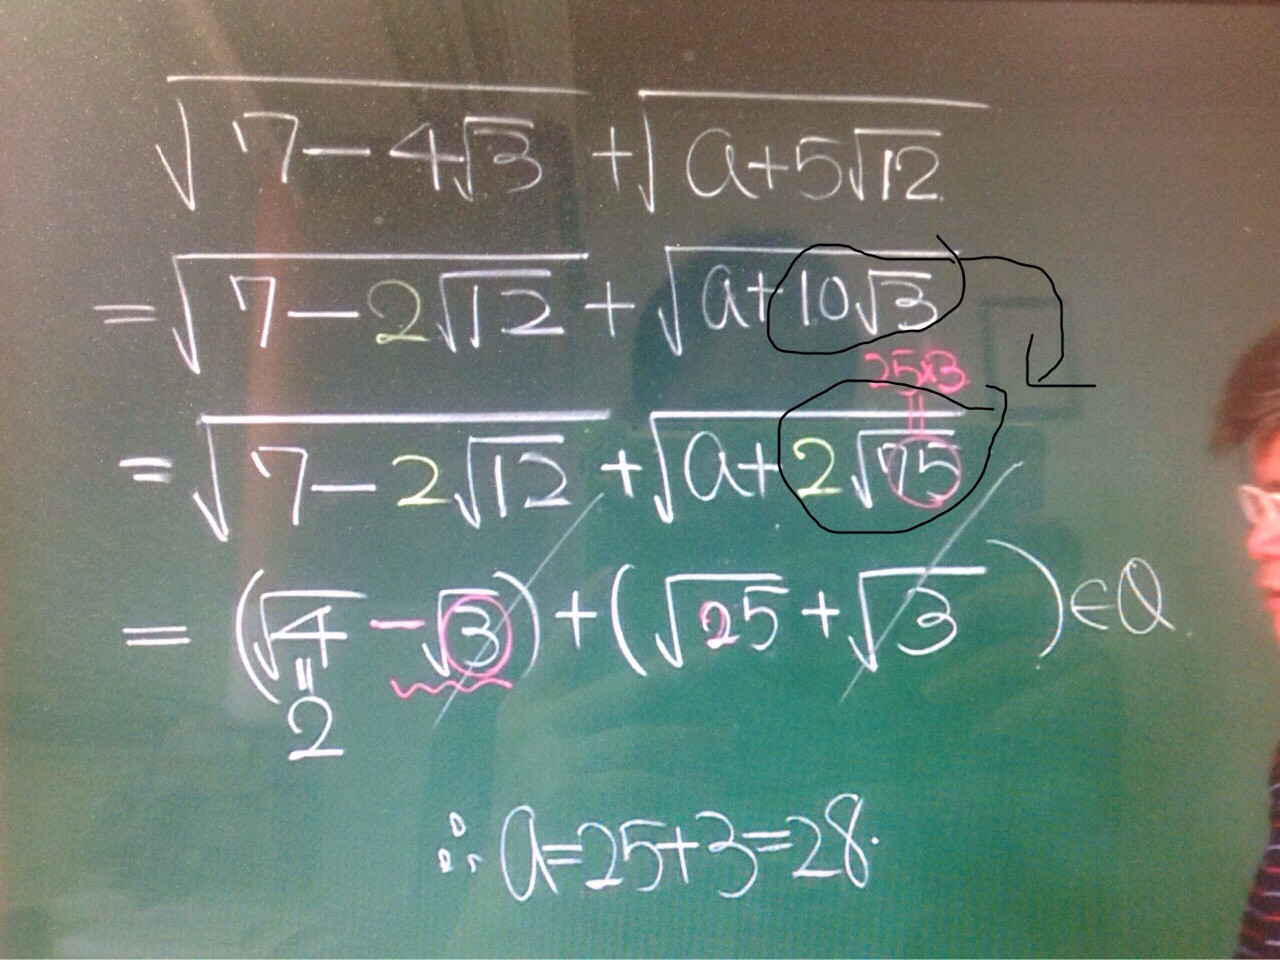 √(7-4√3) + √(a+5√12)
= √(7-2√12) + √(a+10√3)
25×3
||
= √(7-2√12) + √(a+2√75)
= (√4 -√3) + (√25 + √3) ∈ Q
||
2
∴ a=25+3=28.